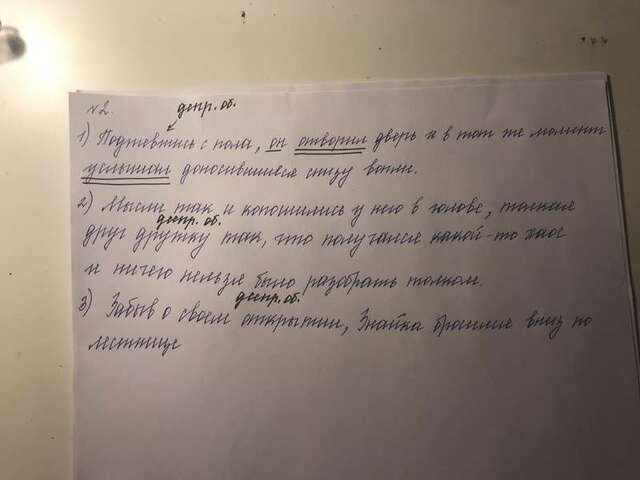 №2.
депр. об.
1) Поднявшись с пола, он отворил дверь и в тот же момент
услышал доносившиеся снизу вопли.
2) Мысли так и копошились у него в голове, толкая
депр. об.
друг дружку так, что получался какой-то хаос
и ничего нельзя было разобрать толком.
депр. об.
3) Забыв о своем открытии, Знайка бросился вниз по
лестнице